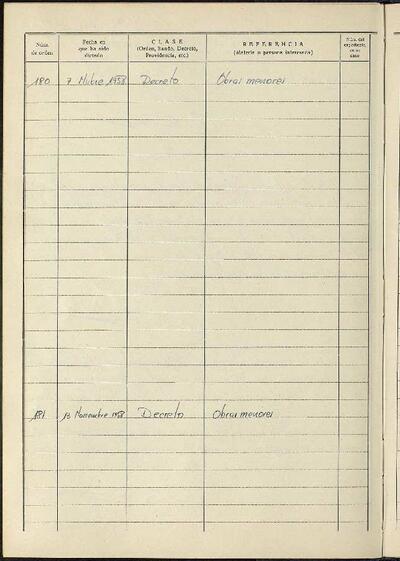 Núm. de orden
Fecha en que ha sido dictado
CLASE (Orden, Bando, Decreto, Providencia, etc.)
REFERENCIA (Materia o persona interesada)
Núm. del expediente, en su caso
180 7 Nvbre 1958 Decreto Obras menores
181 13 Noviembre 1958 Decreto Obras menores